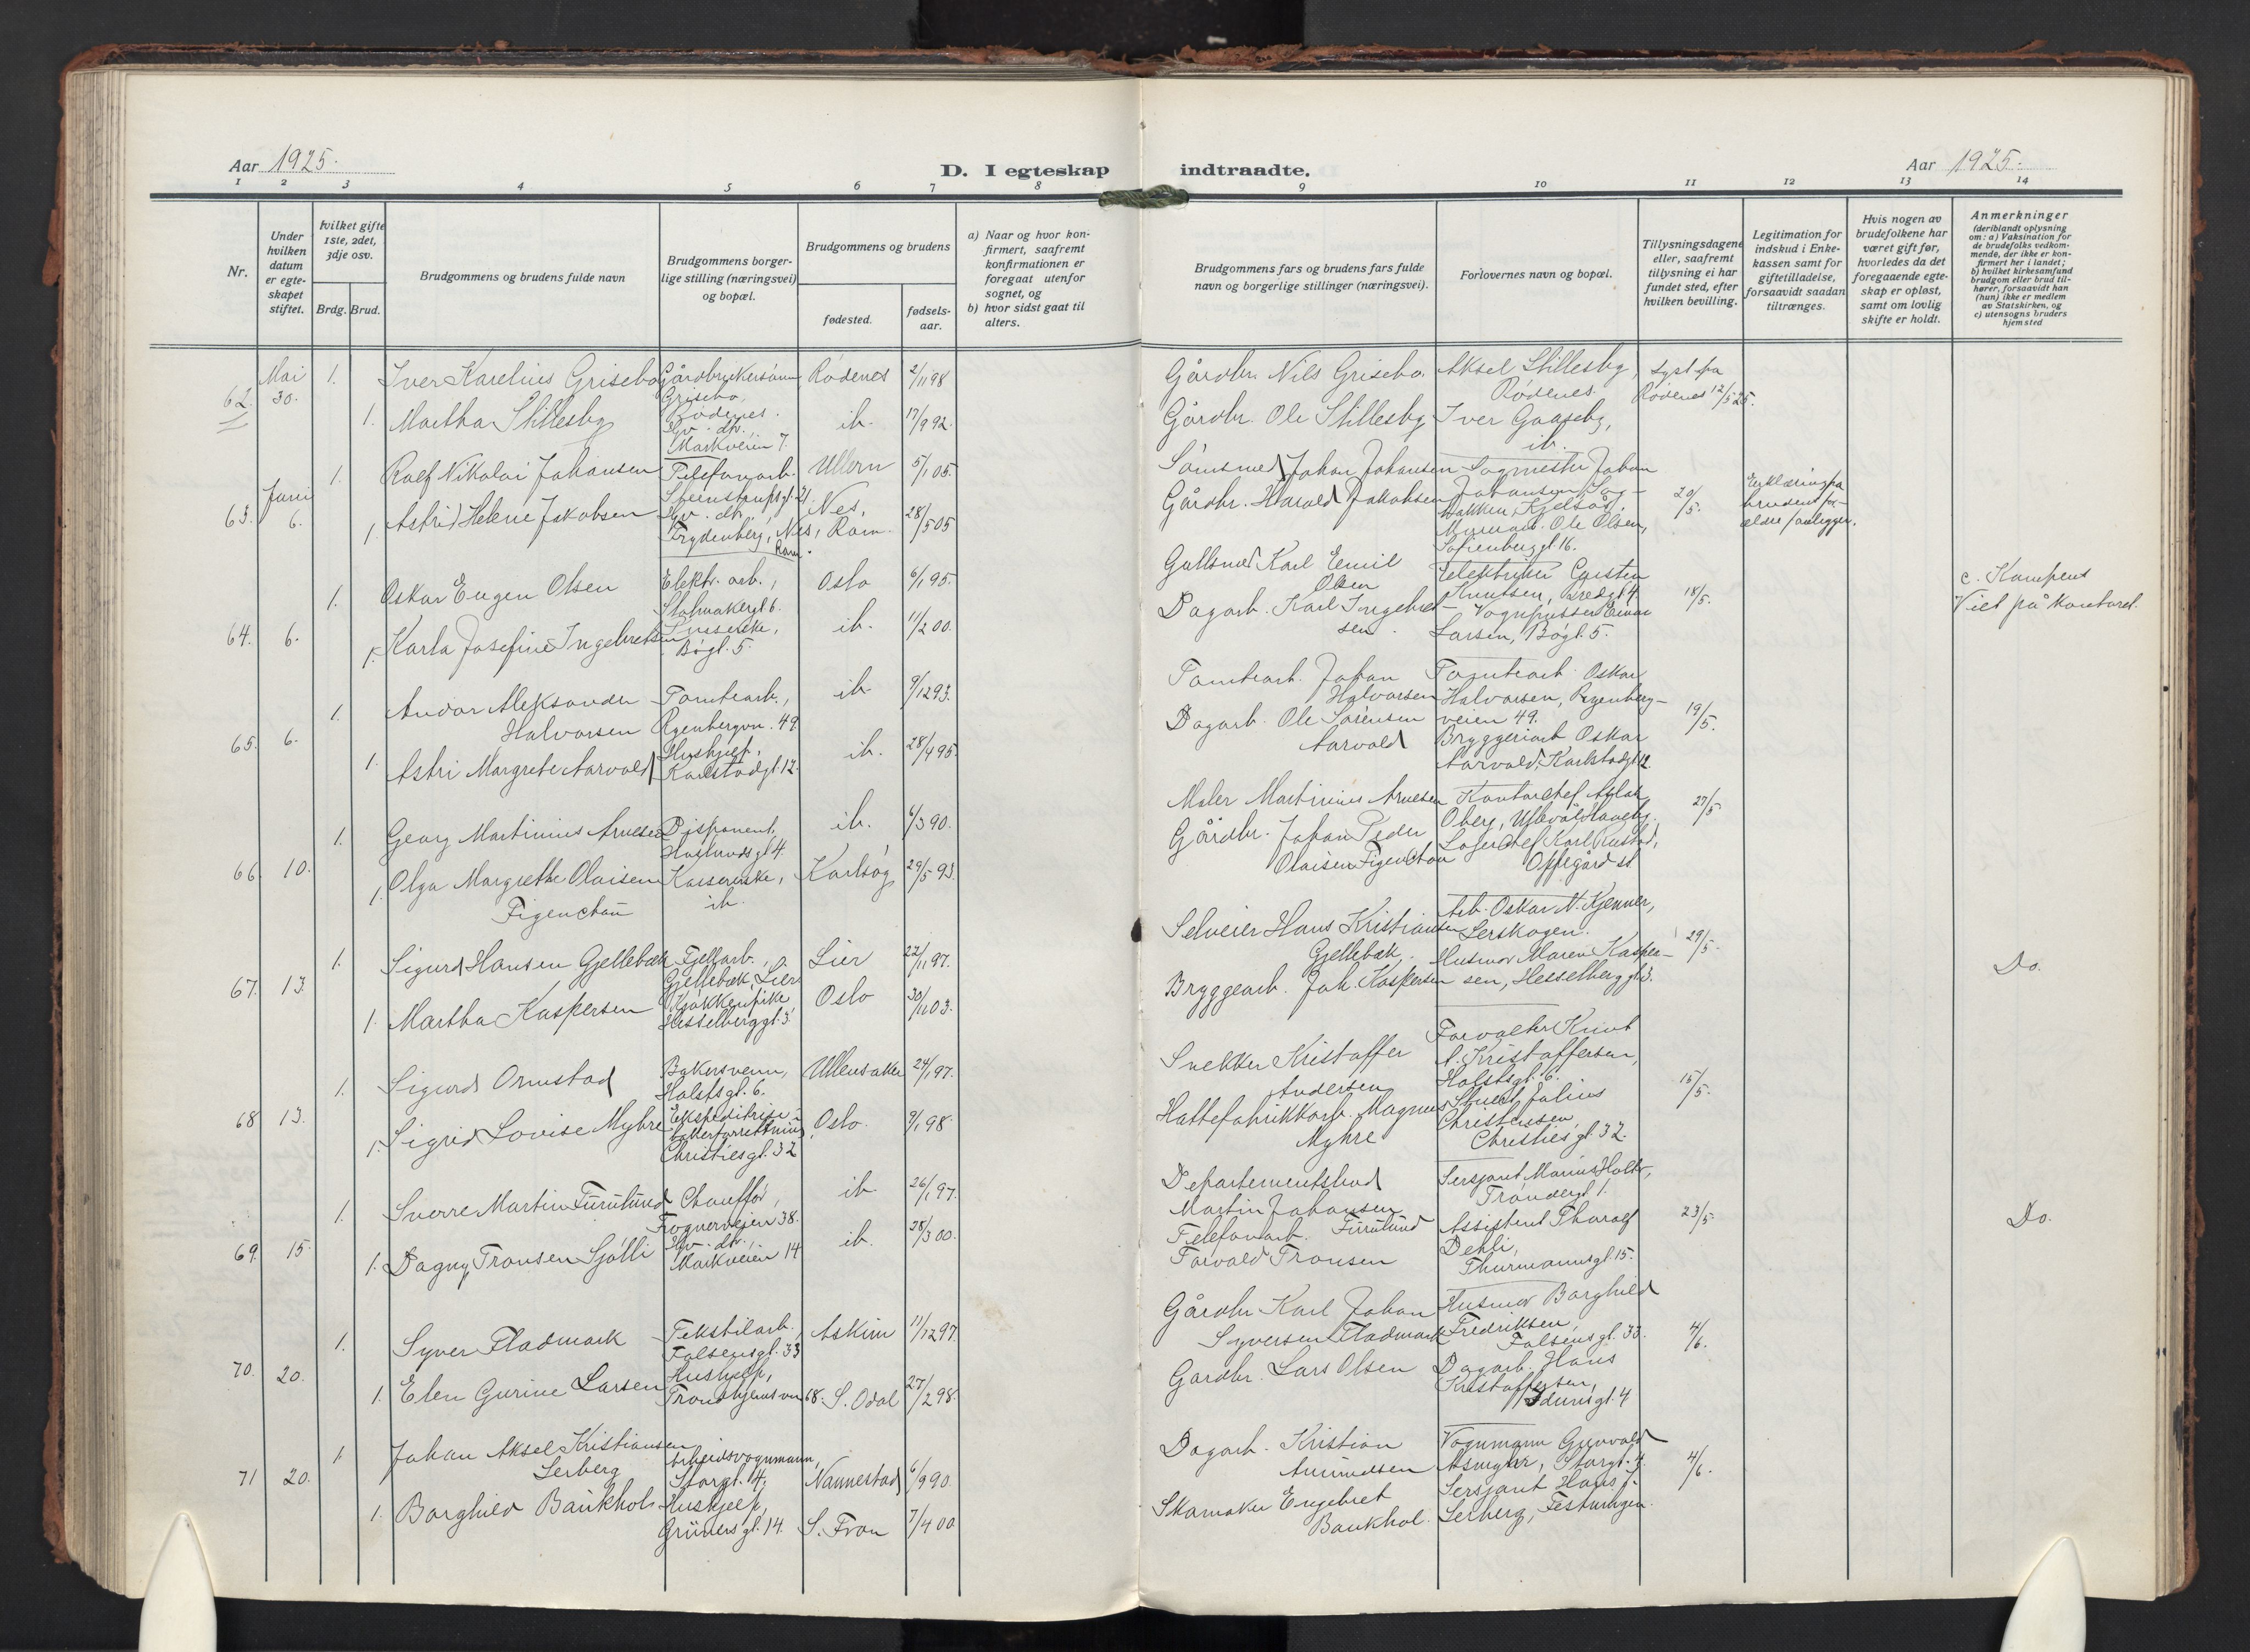 Aar 1925.
D. I egteskap indtraadte.
Aar 1925.
1 2 3 4 5 6 7 8 9 10 11 12 13 14
Nr.
Under hvilken datum er egteskapet stiftet.
hvilket gifte 1ste, 2det, 3dje osv.
Brdg. Brud.
Brudgommens og brudens fulde navn
Brudgommens borgerlige stilling (næringsvei) og bopæl.
Brudgommens og brudens
fødested.
fødselsaar.
a) Naar og hvor konfirmert, saafremt konfirmationen er foregaat utenfor sognet, og
b) hvor sidst gaat til alters.
Brudgommens fars og brudens fars fulde navn og borgerlige stillinger (næringsvei).
Forlovernes navn og bopæl.
Tillysningsdagene eller, saafremt tillysning ei har fundet sted, efter hvilken bevilling.
Legitimation for indskud i Enkekassen samt for giftetilladelse, forsaavidt saadan tiltrænges.
Hvis nogen av brudefolkene har været gift før, hvorledes da det foregaaende egteskap er opløst, samt om lovlig skifte er holdt.
Anmerkninger
(deriblandt oplysning om: a) Vaksination for de brudefolks vedkommende, der ikke er konfirmert her i landet; b) hvilket kirkesamfund brudgom eller brud tilhører, forsaavidt han (hun) ikke er medlem av Statskirken, og c) utensogns bruders hjemsted
62. Mai 30. 1. Iver Karelius Grisebo Gårdbrukersønn Grisebo, Rødenes. Rødenes 2/11 98 Gårdbr. Nils Grisebo. Aksel Stillesby, Rødenes. Lyst fra Rødenes 12/5 25.
1. Martha Stillesby Hv. dtr., Markveien 7. ib. 17/9 92. Gårdbr. Ole Stillesby Iver Gaaseby, ib.
63. Juni 6. 1. Rolf Nikolai Johansen Telefonarb. Steenstrupsgt. 21. Ullern 5/1 05. Johan Johansen Sagmester Johan Johansen, Kjelsås. 20/5. Erklæring fra brudens forældre foreligger.
1. Astrid Helene Jakobsen Hv. dtr., Frydenberg, Nes, Rom. Nes, Rom. 28/5 05 Gårdbr. Harald Jakobsen Ole Olsen, Sofienberggt. 16.
64. 6. 1. Oskar Eugen Olsen Elektr. arb., 6. Oslo 6/1 95. Gullsmed Karl Emil Olsen Elektriker Carsten Knutsen, 18/5. c. Kampens Viet på kontoret.
1. Karla Josefine Ingebretsen Bøgt. 5. ib. 11/2 00. Dagarb. Karl Ingebretsen. Einar Larsen, Bøgt. 5.
65. 6. 1. Andor Aleksander Halvorsen Tomtearb., Ryenbergvn. 49 ib. 9/12 93. Tomtearb. Johan Halvorsen Tomtearb. Oskar Halvorsen, Ryenbergveien 49. 19/5.
1. Astri Margrete Aarvold Hushjelp, Karlstadgt. 12. ib. 28/4 95. Dagarb. Ole Sørensen Aarvold Bryggeriarb. Oskar Aarvold, Karlstadgt. 12.
66. 10. 1. Georg Martinius Arnesen Disponent, 4. ib. 6/3 90. Maler Martinius Arnesen Kontorchef Oberg, Ullevål Haveby. 27/5
1. Olga Margrethe Olaisen Figenchau Kassererske, ib. Karlsøy 29/5 93. Gårdbr. Johan Peder Olaisen Figenchau Lagerchef Karl Rustad, Oppegård st.
67. 13. 1. Sigurd Hansen Gjellebæk Fjellarb., Gjellebæk, Lier Lier 22/11 97. Selveier Hans Kristiansen Gjellebæk. Arb. Oskar N. Kjenner, Lerskogen. 29/5. Do.
1. Martha Kaspersen Kjøkkenpike Hesselberggt. 3. Oslo 30/11 03. Bryggearb. Joh. Kaspersen Husmor Maren Kaspersen, Hesselberggt. 3.
68 13. 1. Sigurd Ormstad Bakersvenn, Holstsgt. 6. Ullensaker 24/1 97. Snekker Kristoffer Andersen Forvalter Knut A. Kristoffersen, Holstsgt. 6. 15/5.
1. Sigrid Lovise Myhre Ekspeditrise i bakerforretning, Christiesgt. 32 Oslo. 9/1 98. Hattefabrikkarb. Magnus Myhre Julius Christensen, Christiesgt. 32.
69. 15. 1. Sverre Martin Furulund Chauffør, Frognerveien 38. ib. 26/1 97. Departementsbud Martin Johansen Furulund Sersjant Marius Holter, Trøndergt. 1. 23/5. Do.
1. Dagny Tronsen Sjølli Hv. dtr., Markveien 14 ib. 28/3 00. Telefonarb. Torvald Tronsen Assistent Thoralf Dehli, Thurmannsgt. 15.
70. 20. 1. Syver Fladmark Tekstilarb., Falsensgt. 33 Askim 11/12 97. Gårdbr. Karl Johan Syversen Fladmark Husmor Borghild Fredriksen, Falsensgt. 33. 4/6.
1. Elen Gurine Larsen Hushjelp, Trondhjemsvn 68. S. Odal 27/2 98. Gårdbr. Lars Olsen Dagarb. Hans Kristoffersen, Idunsgt. 4
71 20. 1. Johan Aksel Kristiansen Lerberg Arbeidsvognmann, Storgt. 4, Nannestad 6/9 90. Dagarb. Kristian Amundsen Vognmann Gunvald Asmyhr, Storgt. 4. 4/6.
1. Borghild Baukhol Hushjelp, Grünersgt. 14. S. Fron 7/4 00 Skomaker Engebret Baukhol. Sersjant Hans J. Lerberg, Festningen.